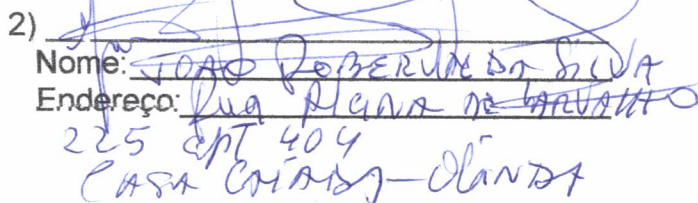 2)
Nome: JOAO ROBERVAL DA SILVA
Endereço: Rua DE CARVALHO
225 APT 404
CASA CAIADA-OLINDA